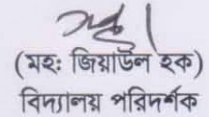 (মহঃ জিয়াউল হক)
বিদ্যালয় পরিদর্শক